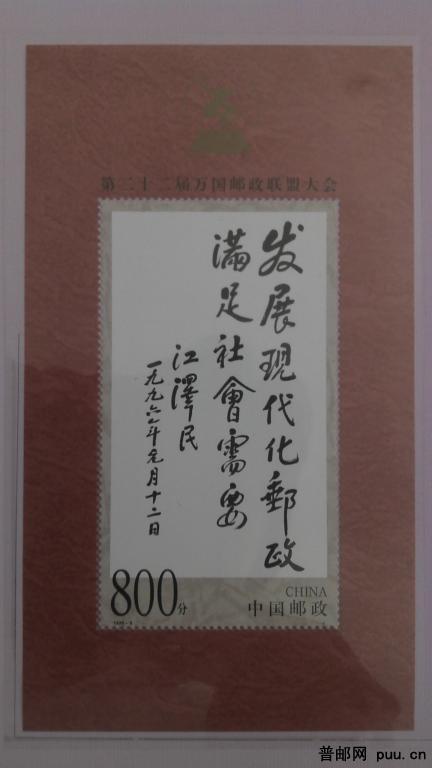 第二十二届万国邮政联盟大会
发展现代化郵政
满足社會需要
江澤民
一九九六年元月十二日
800分
CHINA
中国邮政
普邮网 puu.cn